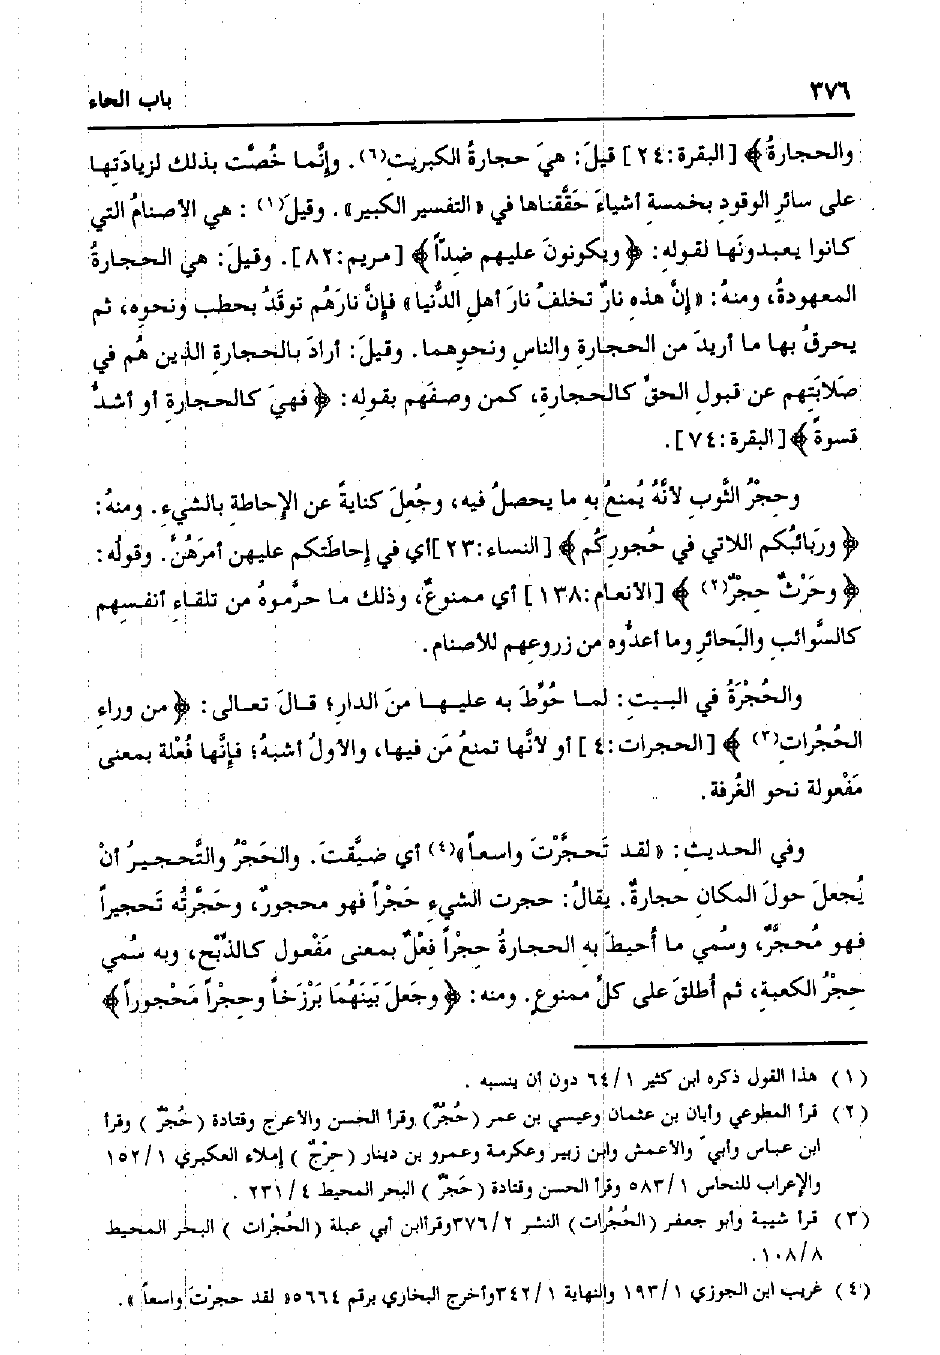 ٣٧٦
باب الحاء
والحجارةُ﴾ [البقرة:٢٤] قيلَ: هيَ حجارةُ الكبريتِ(٦). وإنَّما خُصَّت بذلك لزيادَتِها
على سائرِ الوقودِ بخمسةِ أشياءَ حَقَّقناها في «التفسير الكبير». وقيلَ(١) : هي الأصنامُ التي
كانوا يعبدونَها لقوله: ﴿ويكونونَ عليهم ضِدّاً﴾ [مريم:٨٢]. وقيلَ: هي الحجارةُ
المعهودةُ، ومنهُ: «إنَّ هذهِ نارٌ تخلفُ نارَ أهلِ الدُّنيا» فإنَّ نارَهُم توقَدُ بحطب ونحوِه، ثم
يحرقُ بها ما أريدَ من الحجارةِ والناسِ ونحوِهما. وقيلَ: أرادَ بالحجارةِ الذين هُم في
صَلابَتِهم عن قبولِ الحقِّ كالحجارةِ، كمن وصفَهم بقوله: ﴿فهيَ كالحجارةِ أو أشدُّ
قسوةً﴾ [البقرة:٧٤].
وحِجْرُ الثَّوب لأنَّهُ يُمنعُ به ما يحصلُ فيه، وجُعلَ كنايةً عن الإحاطةِ بالشيءِ. ومنهُ:
﴿ورَبائبُكم اللاتي في حُجورِكُم﴾ [النساء:٢٣]أي في إحاطَتكم عليهن أمرَهُنَّ. وقولُه:
﴿وحَرْثٌ حِجْرٌ(٢) ﴾ [الأنعام:١٣٨] أي ممنوعٌ، وذلك ما حرَّموهُ من تلقاءِ أنفسِهم
كالسَّوائبِ والبَحائرِ وما أعدُّوه من زروعِهم للأصنام.
والحُجْرَةُ في البيتِ: لما حُوِّطَ به عليها منَ الدارِ؛ قالَ تعالى: ﴿من وراءِ
الحُجُرات(٣) ﴾ [الحجرات:٤] أو لأنَّها تمنعُ مَن فيها، والأولُ أشبهُ؛ فإنَّها فُعْلة بمعنى
مَفْعولة نحو الغُرفة.
وفي الحديثِ: «لقد تَحجَّرْتَ واسعاً»(٤) أي ضيَّقتَ. والحَجْرُ والتَّحجيرُ أنْ
يُجعلَ حولَ المكانِ حجارةٌ. يقالُ: حجرت الشيءِ حَجْراً فهو محجورٌ، وحَجَّرتُه تَحجيراً
فهو مُحجَّرٌ، وسُمي ما أُحيطَ به الحجارةُ حِجْراً فِعْلٌ بمعنى مَفْعول كالذِّبْحِ، وبه سُمي
حِجْرُ الكعبةِ، ثم أُطلقَ على كلِّ ممنوعٍ. ومنه: ﴿وجَعلَ بَينَهُمَا بَرْزَخاً وحِجْراً مَحْجوراً﴾
(١) هذا القول ذكره ابن كثير ٦٤/١ دون أن ينسبه .
(٢) قرأ المطوعي وأبان بن عثمان وعيسي بن عمر (حُجُرٌ) وقرأ الحسن والأعرج وقتادة (حُجْرٌ ) وقرأ
ابن عباس وأبيّ والأعمش وابن زبير وعكرمة وعمرو بن دينار (حِرْجٌ ) إملاء العكبري ١٥٢/١
والإعراب للنحاس ٥٨٣/١ وقرأ الحسن وقتادة (حَجْرٌ ) البحر المحيط ٢٣١/٤ .
(٣) قرأ شيبة وأبو جعفر (الحُجَرات) النشر ٣٧٦/٢وقرأابن أبي عبلة (الحُجْرات ) البحر المحيط
١٠٨/٨.
(٤) غريب ابن الجوزي ١٩٣/١ والنهاية ٣٤٢/١وأخرج البخاري برقم ٥٦٦٤« لقد حجرْتَ واسعاً ».